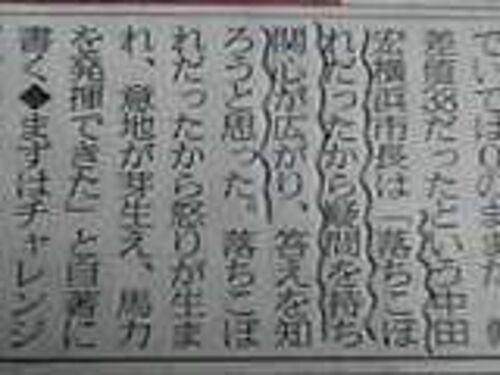 差値38だったという中田
宏横浜市長は「落ちこぼ
れだったから疑問を持ち
関心が広がり、答えを知
ろうと思った。落ちこぼ
れだったから怒りが生ま
れ、意地が芽生え、馬力
を発揮できた」と自著に
書く◆まずはチャレンジ